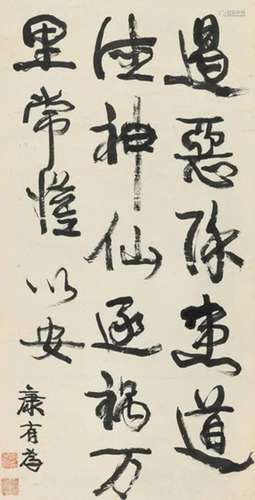 遏惡除患道
德神仙逐禍万
里常懽以安
康有為